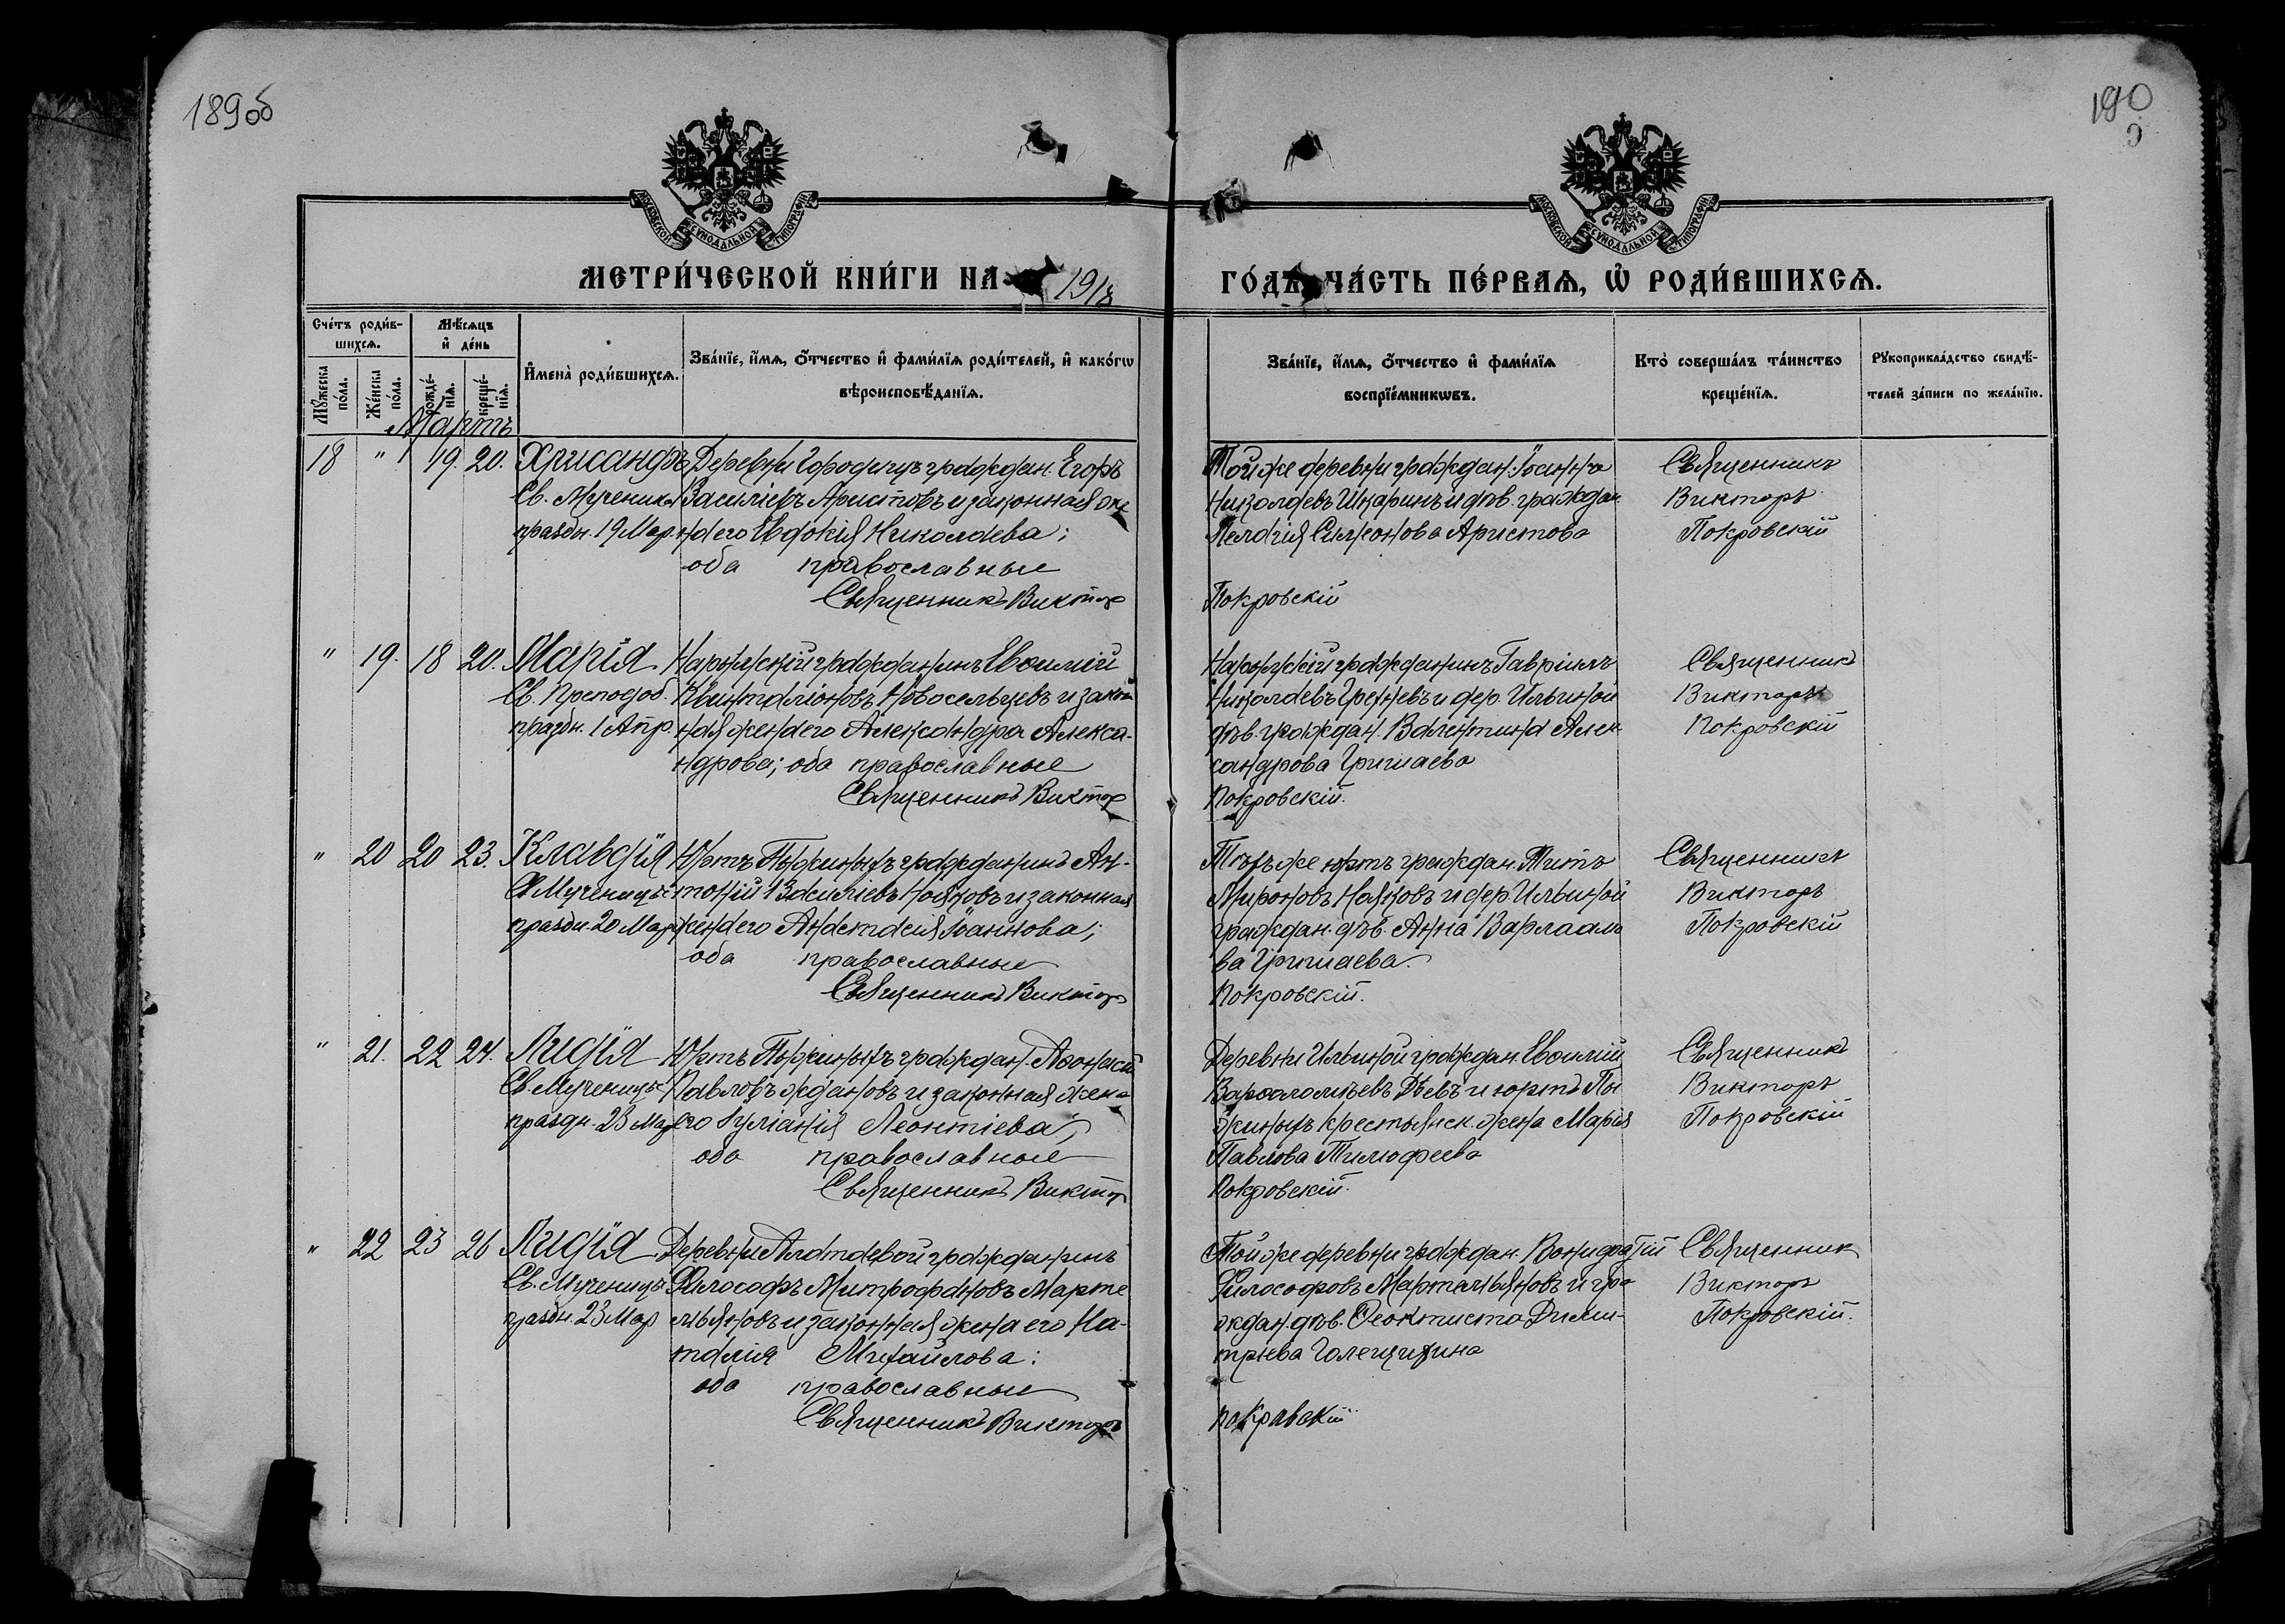 189об
190
МОСКОВСКОЙ СѴНОДАЛЬНОЙ ТИПОГРАФІИ
МОСКОВСКОЙ СѴНОДАЛЬНОЙ ТИПОГРАФІИ
МЕТРИ́ЧЕСКОЙ КНИ́ГИ НА 1918
ГО́ДЪ ЧА́СТЬ ПЕ́РВАѦ, Ѡ РОДИ́ВШИХСѦ.
Сче́тъ роди́в-
шихсѧ.
Мꙋжеска
по́ла.
Же́нска
по́ла.
Мѣ́сѧцъ
и҆ де́нь
рожде́-
нїѧ.
креще́-
нїѧ.
И҆мена̀ роди́вшихсѧ.
Зва́нїе, и҆́мѧ, ѻ҆́тчество и҆ фами́лїѧ роди́телей, и҆ како́гѡ
вѣроисповѣ́данїѧ.
Зва́нїе, и҆́мѧ, ѻ҆́тчество и҆ фами́лїѧ
воспрїе́мникѡвъ.
Кто̀ соверша́лъ та́инство
креще́нїѧ.
Рꙋкоприкла́дство свидѣ́-
телей за́писи по жела́нїю.
Мартъ
18 " 19. 20. Хрисанфъ
Св. Мученика
праздн. 19 Мар.
Деревни Городищъ граждан. Егоръ
Василіевъ Аристовъ и законная же
на его Евдокія Николаева;
оба православные
Священникъ Виктор
Той же деревни граждан. Іоаннъ
Николаевъ Шкаринъ и дѣв. граждан.
Пелагія Симеонова Аристова
Покровскій
Священникъ
Викторъ
Покровскій
" 19. 18 20. Марія
Св. Преподоб.
праздн. 1 Апр.
Нарымскій гражданинъ Евѳимій
Новосельцевъ и закон
ная жена его Александра Алекса-
ндрова; оба православные
Священникъ Виктор
Нарымскій гражданинъ Гавріилъ
Николаевъ Греневъ и дер. Ильиной
дѣв. граждан. Валентина Алек-
сандрова Гришаева
Покровскій.
Священникъ
Викторъ
Покровскій
" 20 20 23. Клавдія
Св Мученицы
праздн. 20 Мар
Юртъ Пыжиныхъ гражданинъ Ан-
тоній Василіевъ Нояковъ и законная
жена его Анастасія Іоаннова;
оба православные
Священникъ Виктор
Тѣхъ же юртъ граждан. Титъ
Мироновъ Нояковъ и дер. Ильиной
граждан. дѣв. Анна Варлаамо
ва Гришаева.
Покровскій.
Священникъ
Викторъ
Покровскій
" 21. 22 24. Лидія
Св. Мученицы
праздн. 23 Мар
Юртъ Пыжиныхъ граждан. Аѳонасій
Павловъ Ждановъ и законная жена
его Іуліанія Леонтіева;
оба православные
Священникъ Виктор
Деревни Ильиной граждан. Евѳимій
Варѳоломѣевъ Дѣевъ и юртъ Пы
жиныхъ крестьянск. жена Марія
Павлова Тимофеева
Покровскій.
Священникъ
Викторъ
Покровскій
" 22 23 26 Лидія
Св. Мученицъ
праздн. 23 Мар
Деревни Алатаевой гражданинъ
Философъ Митрофановъ Марте
мьяновъ и законная жена его На-
талия Михайлова:
оба православные
Священникъ Викторъ
Той же деревни граждан. Вонифатій
Философовъ Мартемьяновъ и гра
ждан. дѣв. Ѳеоктиста Дими-
тріева Голещихина
Покровскій
Священник
Викторъ
Покровскій.